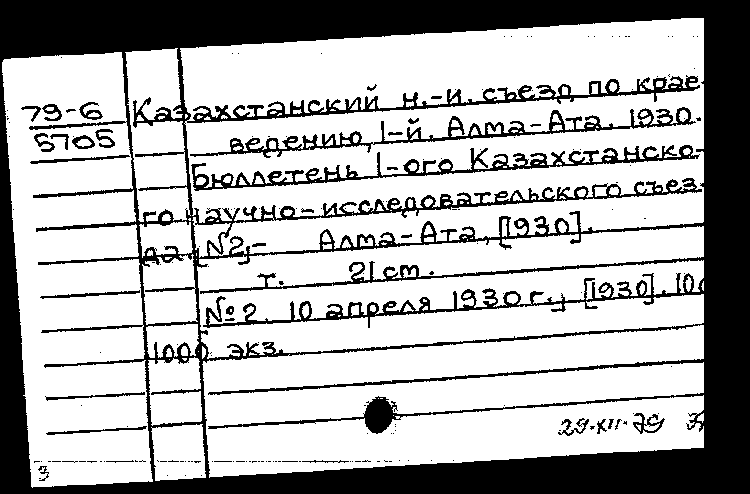 79-6 Казахстанский н.-и. съезд по крае-
5705 ведению, 1-й. Алма-Ата. 1930.
Бюллетень 1-ого Казахстанско-
го научно-исследовательского съез-
да. [№2,- Алма-Ата, [1930].
т. 21 cm.
№ 2. 10 апреля 1930 г., [1930].
1000 экз.
29.XII.79
3